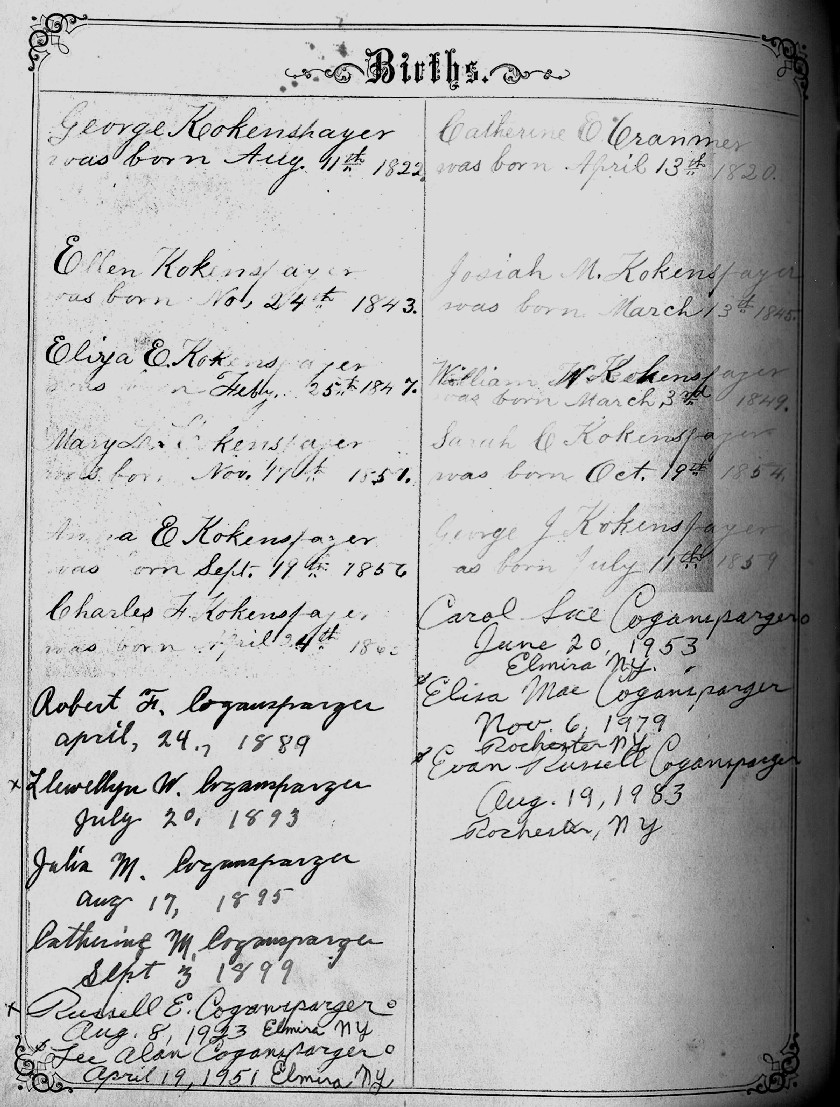 Births.
George Kokenspayer
was born Aug. 11th 1822
Ellen Kokenspayer
was born Nov 24th 1843.
Eliza E. Kokenspayer
was born Feby. 25th 1847.
Mary Kokenspayer
was born Nov. 17th 1851.
Anna E Kokenspayer
was born Sept. 19th 1856
Charles F. Kokenspayer
was born April 24th
Robert F. Cogansparger
april, 24., 1889
x Llewellyn W. Cogansparger
July 20, 1893
Julia M. Cogansparger
aug 17, 1895
Catherine M. Cogansparger
Sept 3 1899
x Russell E. Cogansparger
Aug. 8, 1923 Elmira NY
Lee Alan Cogansparger
April 19, 1951 Elmira, NY
Catherine C Cranmer
was born April 13th 1820.
Josiah M. Kokenspayer
was born March 13th 1845.
William W Kokenspayer
was born March 3rd 1849.
Sarah C Kokenspayer
was born Oct. 19th 1854.
George J Kokenspayer
was born July 11th 1859
Carol Sue Cogansparger
June 20, 1953
Elmira NY.
Elisa Mae Cogansparger
Nov. 6, 1979
Rochester NY
Evan Russell Cogansparger
Aug. 19, 1983
Rochester, NY